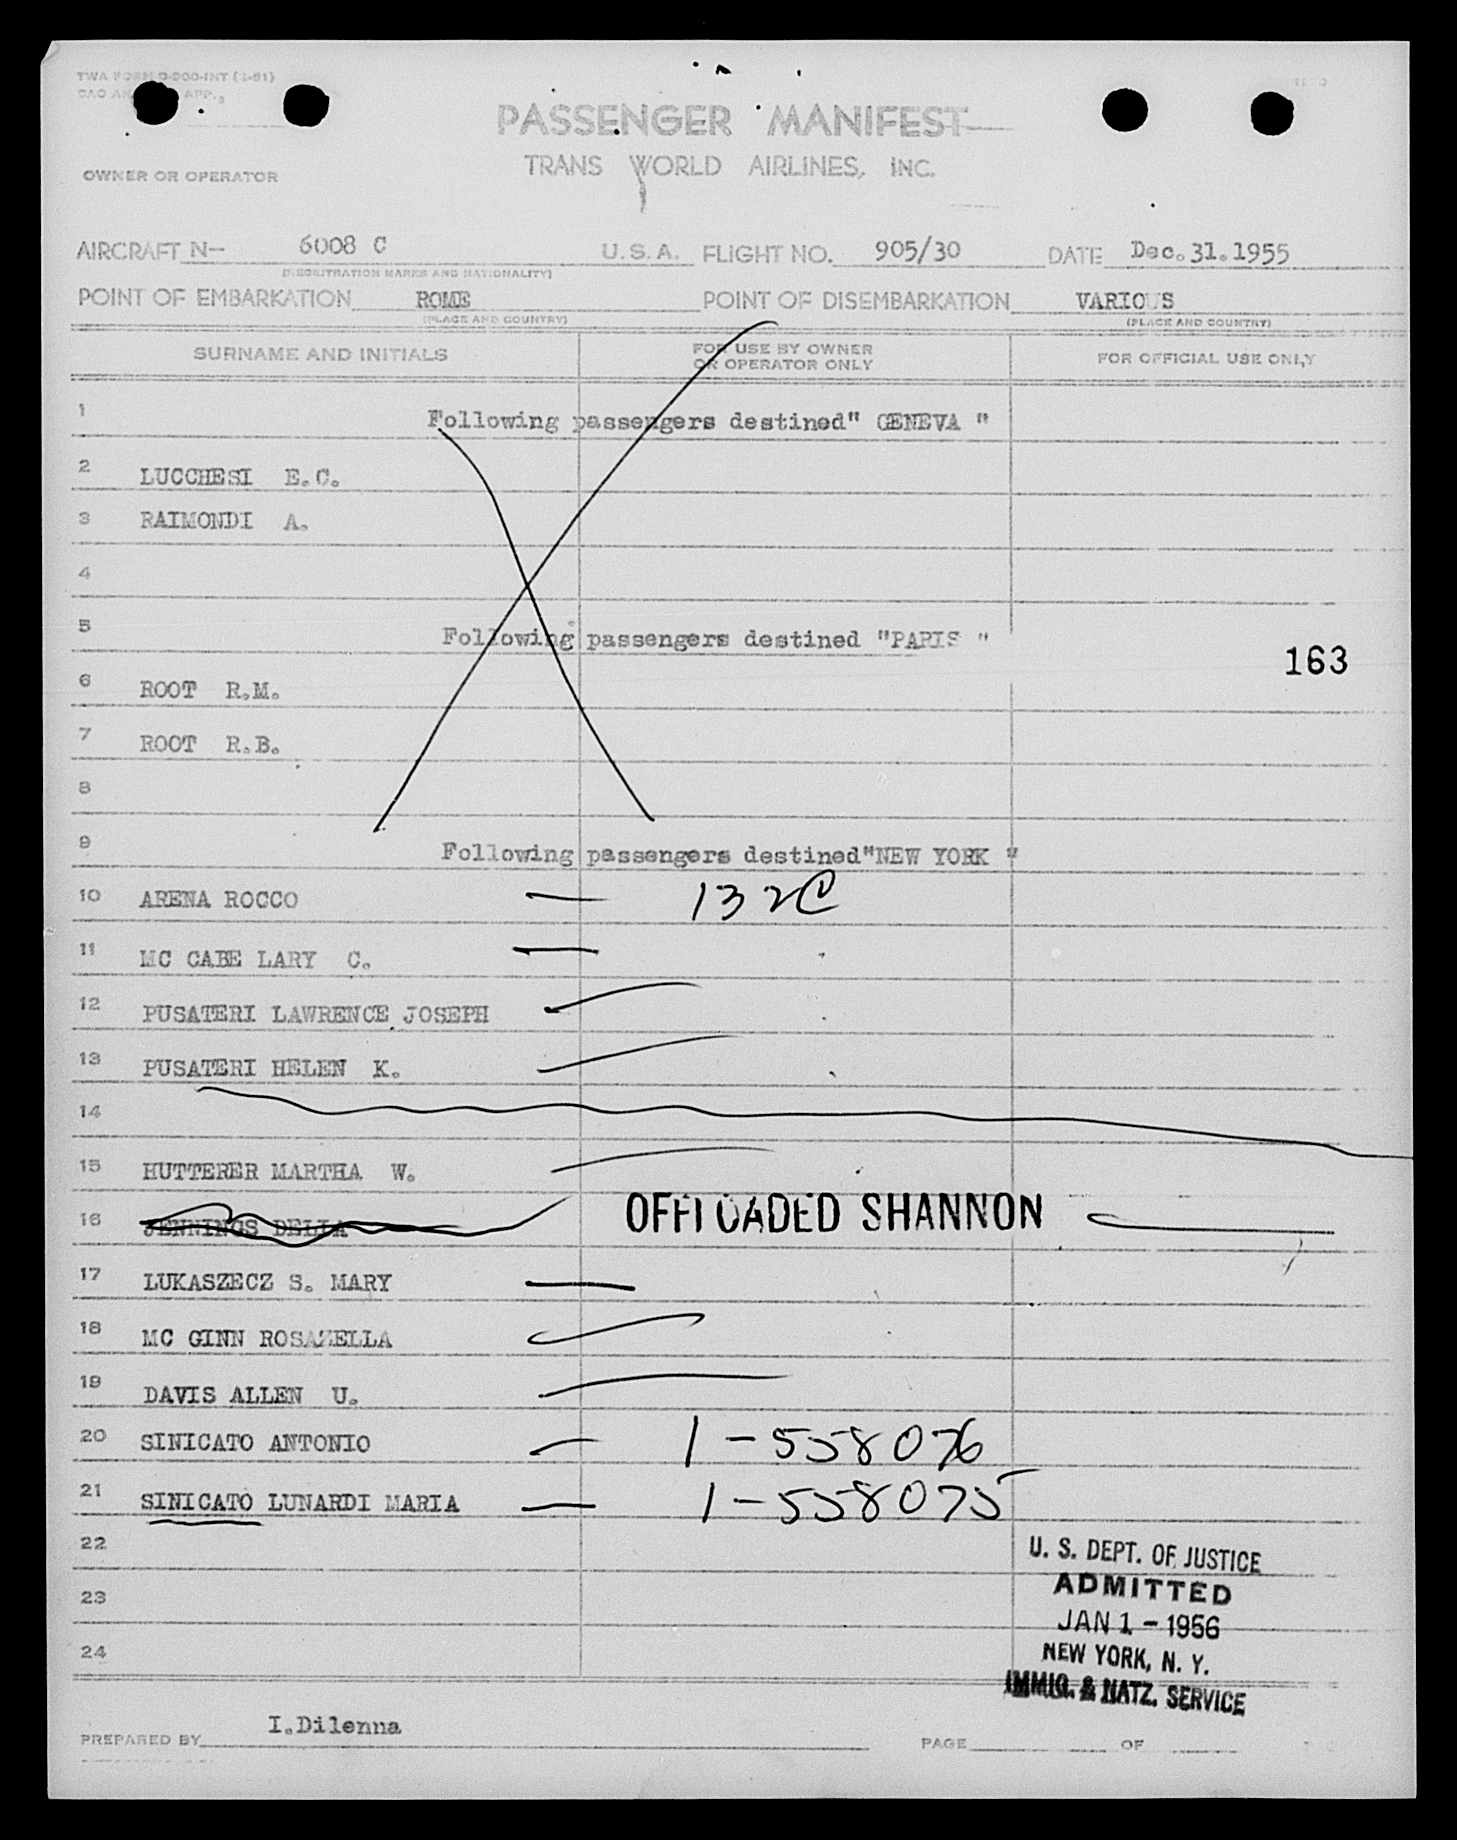 TWA FORM O-200-INT (1-51)
PASSENGER MANIFEST
TRANS WORLD AIRLINES, INC.
OWNER OR OPERATOR
AIRCRAFT N- 6008 C U.S.A. FLIGHT NO. 905/30 DATE Dec.31.1955
(REGISTRATION MARKS AND NATIONALITY)
POINT OF EMBARKATION ROME POINT OF DISEMBARKATION VARIOUS
(PLACE AND COUNTRY) (PLACE AND COUNTRY)
SURNAME AND INITIALS FOR USE BY OWNER OR OPERATOR ONLY FOR OFFICIAL USE ONLY
1 Following passengers destined" GENEVA "
2 LUCCHESI E.C.
3 RAIMONDI A.
4
5 Following passengers destined "PARIS "
163
6 ROOT R.M.
7 ROOT R.B.
8
9 Following passengers destined"NEW YORK "
10 ARENA ROCCO 132
11 MC CABE LARY C.
12 PUSATERI LAWRENCE JOSEPH
13 PUSATERI HELEN K.
14
15 HUTTERER MARTHA W.
16 JENNINGS DELIA OFFLOADED SHANNON
17 LUKASZECZ S. MARY
18 MC GINN
19 DAVIS ALLEN U.
20 SINICATO ANTONIO 1-558076
21 SINICATO LUNARDI MARIA 1-558075
22
23
24
U. S. DEPT. OF JUSTICE
ADMITTED
JAN 1 - 1956
NEW YORK, N. Y.
IMMIG. & NATZ. SERVICE
PREPARED BY I.Dilenna PAGE OF